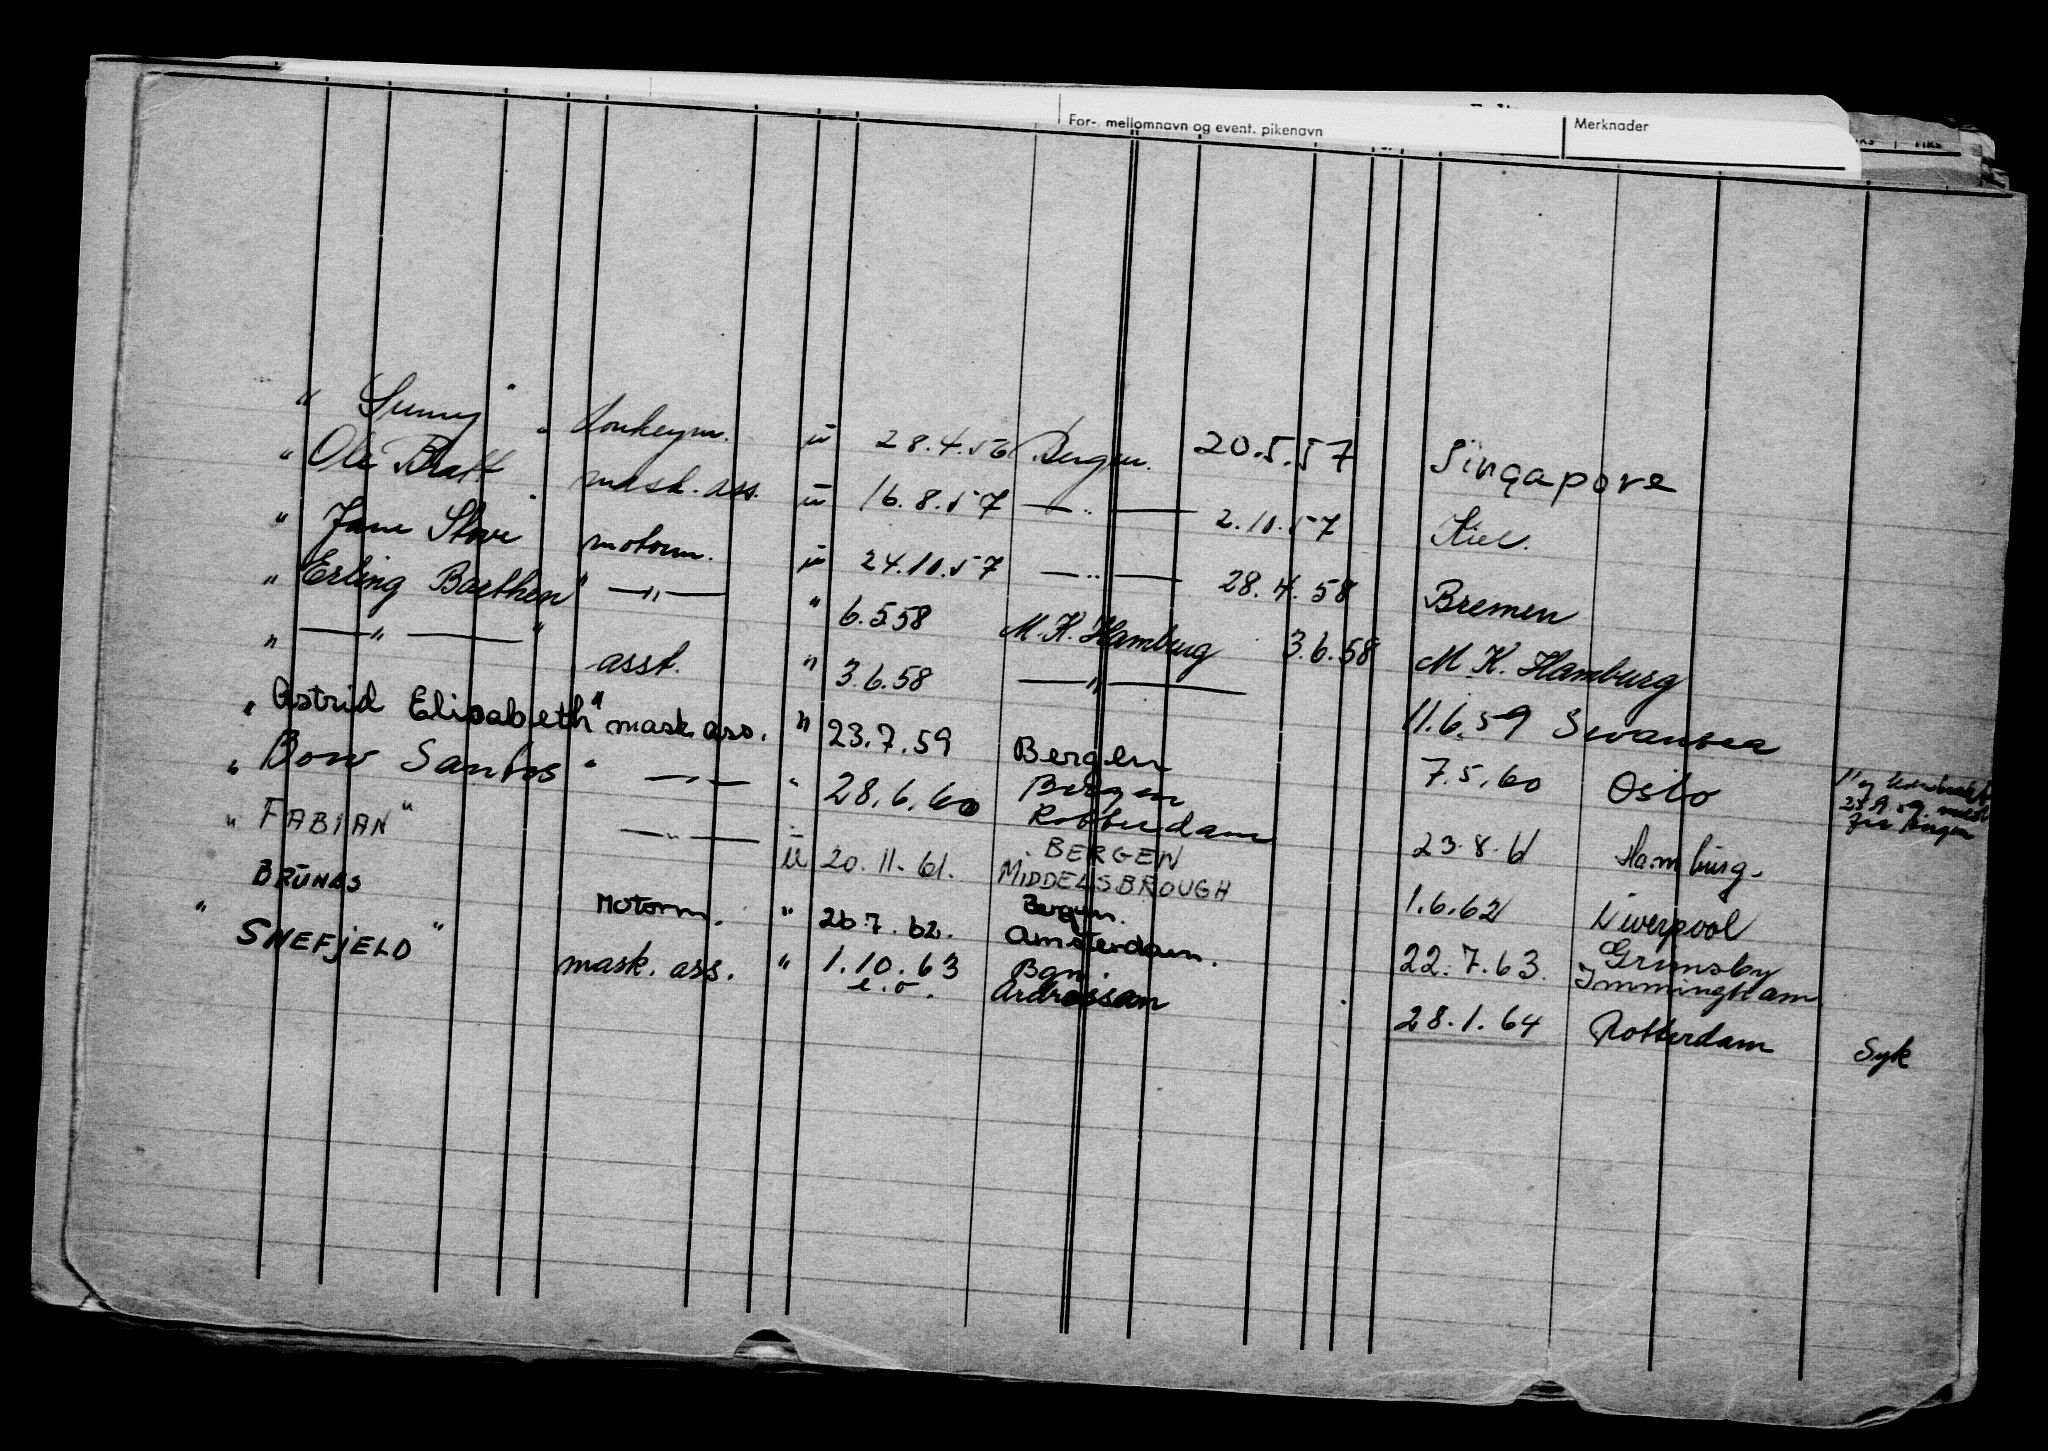 For-, mellomnavn og event. pikenavn Merknader
" Sunny " donkeym. 28.4.56 Bergen. 20.5.57 Singapore
" Ole Bratt " mask. ass. 16.8.57 —"— 2.10.57 Kiel.
" Jane Stove " motorm. 24.10.57 —"— 28.4.58 Bremen
" Erling Borthen " —"— " 6.5.58 M.K. Hamburg 3.6.58 M.K. Hamburg
" —"— " asst. " 3.6.58 —"— 11.6.59 Swansea
" Astrid Elisabeth " mask. ass. " 23.7.59 Bergen 7.5.60 Oslo
" Bow Santos " —"— " 28.6.60 Bergen Rotterdam 23.8.61 Hamburg.
" FABIAN " —"— 20.11.61. BERGEN MIDDELSBROUGH 1.6.62 Liverpool
BRUNES Motorm. " 26.7.62. Bergen. Amsterdam. 22.7.63. Grimsby Immingham
" SNEFJELD " mask. ass. " 1.10.63 Bgn. Ardrossan 28.1.64 Rotterdam Syk